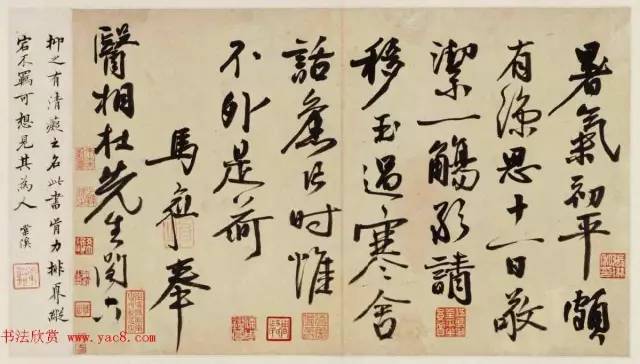 暑氣初平頗
有涼思十一日敬
潔一觴敢請
移玉過寒舍
話舊片时惟
不外是荷
馬愈奉
醫相杜先生閣下
抑之有清癡之名此書骨力排奡縱
宕不羈可想見其為人
书法欣赏
www.yac8.com